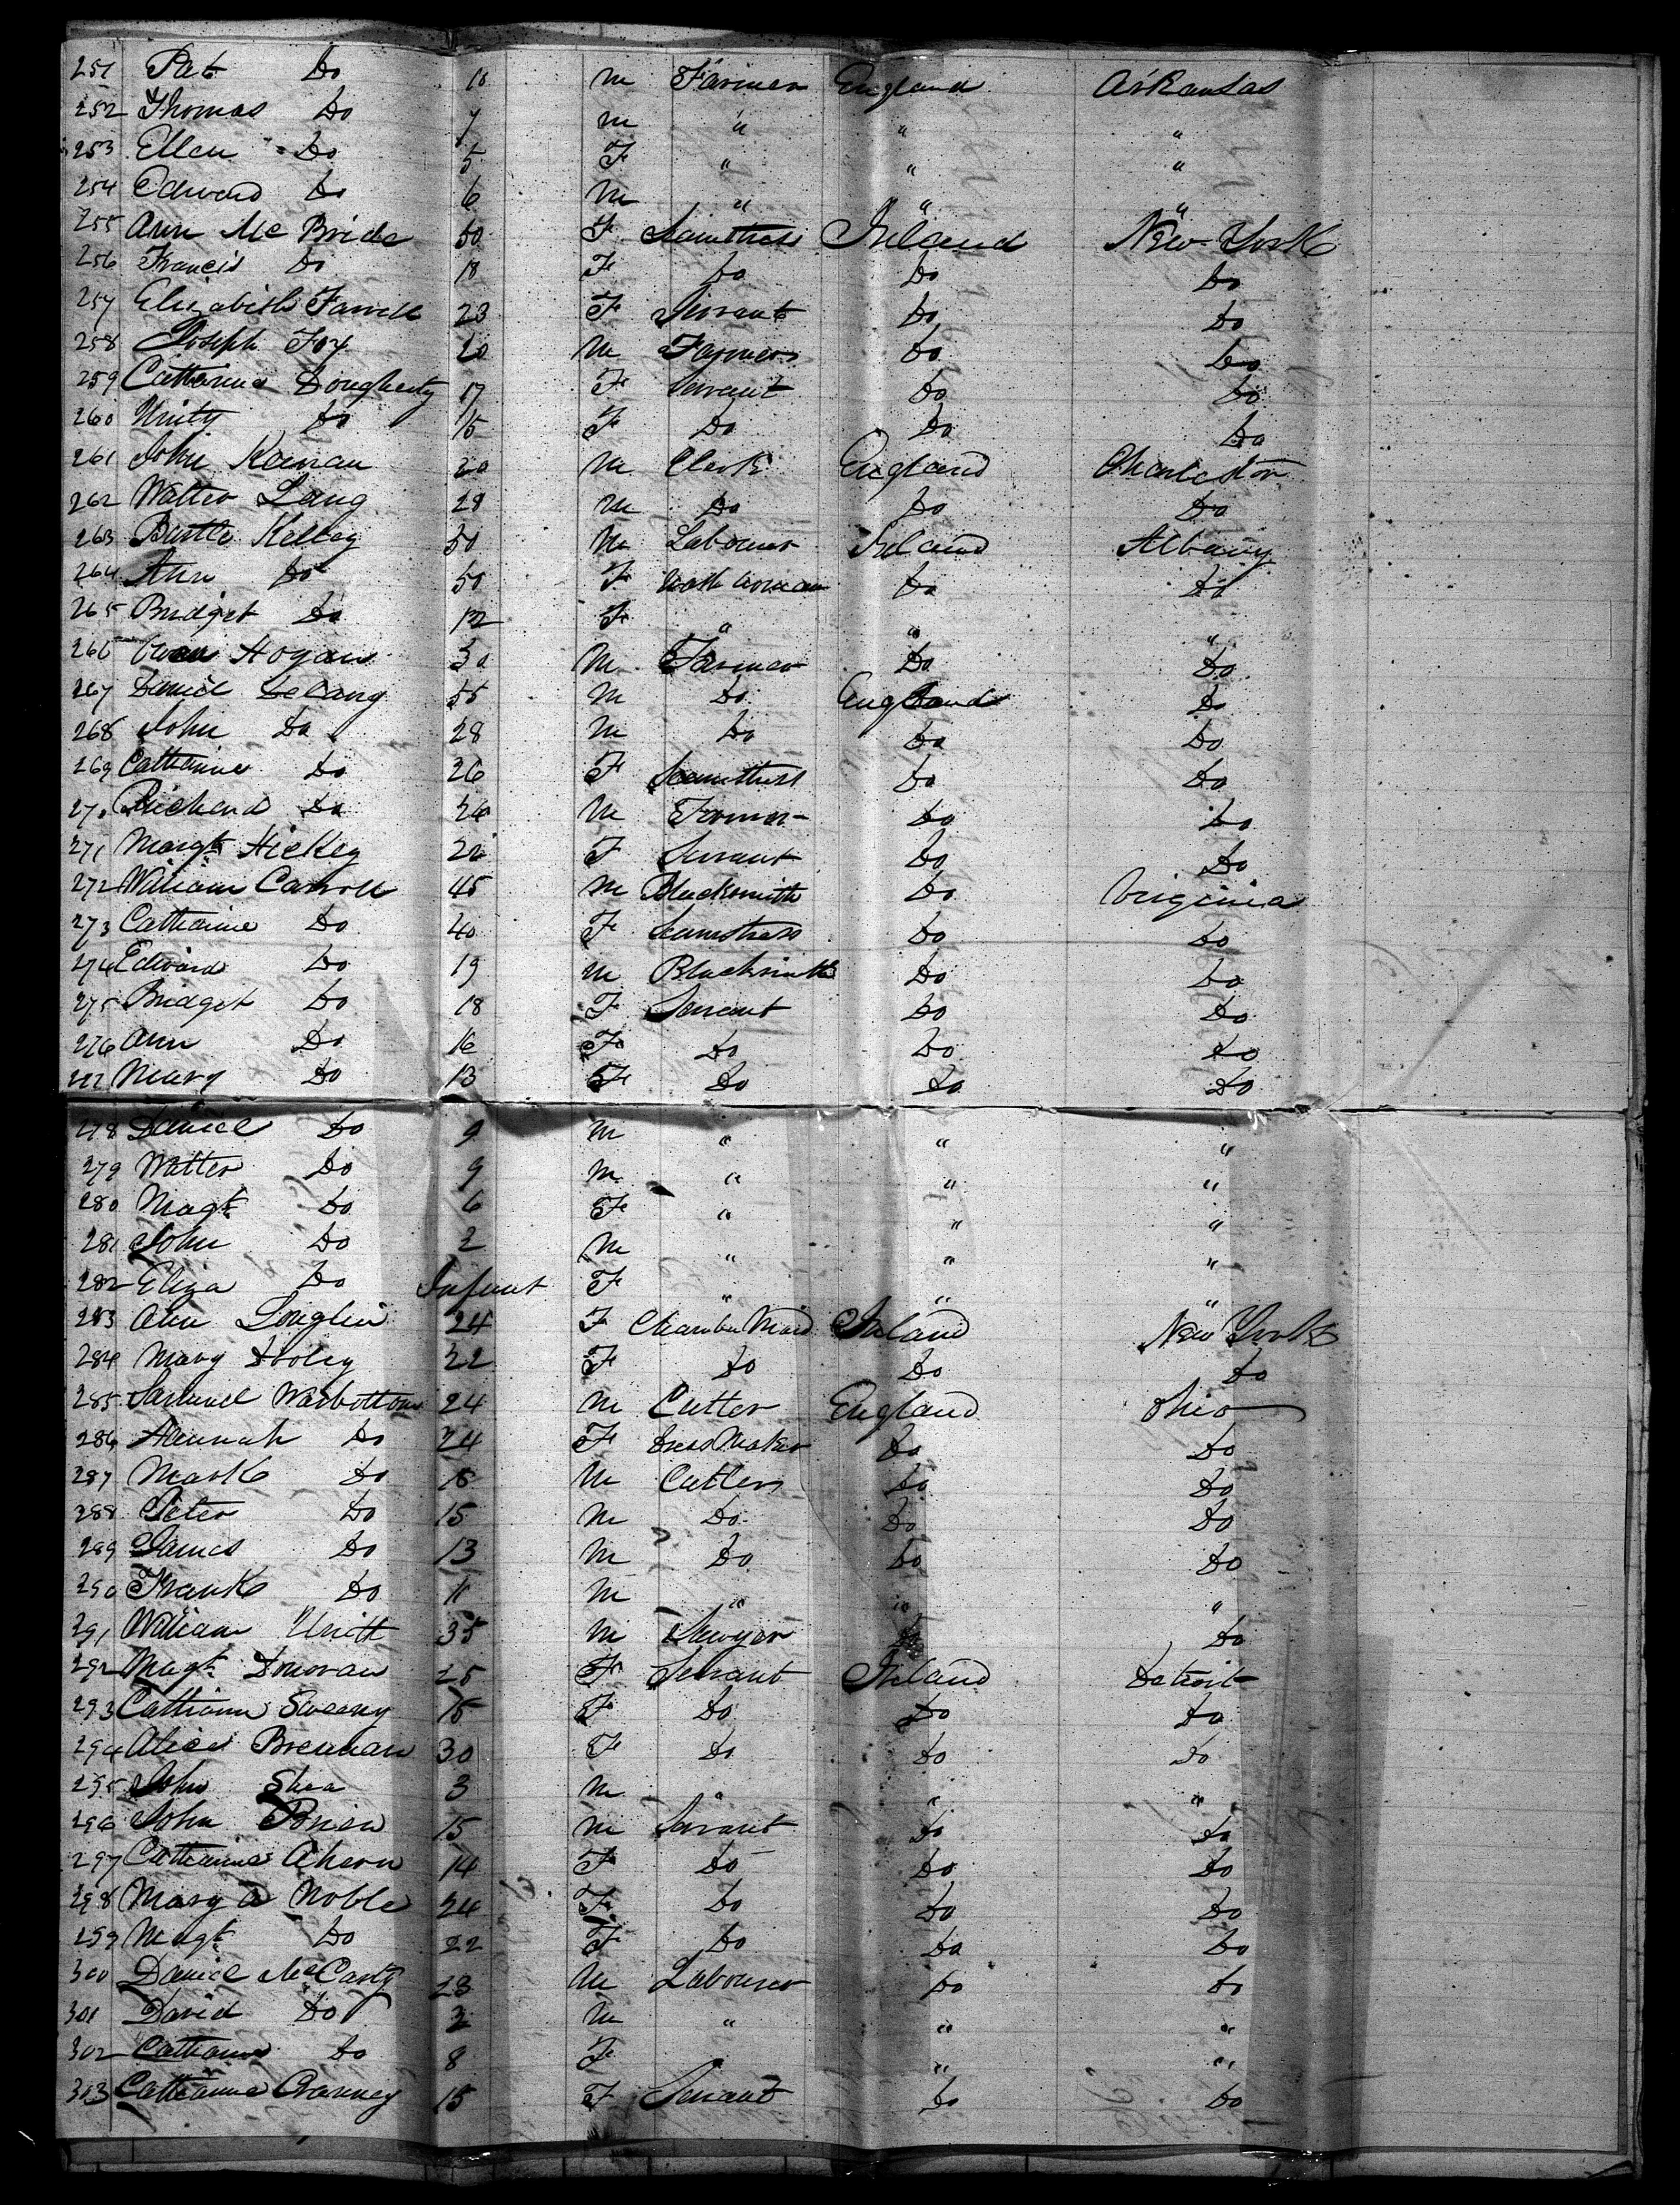 251 Pat Do 10 M Farmer England Arkansas
252 Thomas Do 7 M " " "
253 Ellen Do 5 F " " "
254 Edward Do 6 M " " "
255 Ann Mc Bride 50 F Seamstress Ireland New York
256 Francis Do 18 F Do Do Do
257 Elizabeth Farrell 23 F Servant Do Do
258 Joseph Foy 20 M Farmer Do Do
259 Catharine Dougherty 17 F Servant Do Do
260 Unity Do 15 F Do Do Do
261 John Keenan 30 M Clerk England Charleston
262 Walter Lang 28 M Do Do Do
263 Bartle Kelley 50 M Labourer Ireland Albany
264 Ann Do 50 F Work Woman Do Do
265 Bridget Do 12 F " " "
266 Owen Hogan 30 M Farmer Do Do
267 Daniel Delang 55 M Do England Do
268 John Do 28 M Do Do Do
269 Catharine Do 26 F Seamstress Do Do
270 Richard Do 26 M Farmer Do Do
271 Margt Hickey 22 F Servant Do Do
272 William Carroll 45 M Blacksmith Do Virginia
273 Catharine Do 40 F Seamstress Do Do
274 Edward Do 19 M Blacksmith Do Do
275 Bridget Do 18 F Servant Do Do
276 Ann Do 16 F Do Do Do
277 Mary Do 13 F Do Do Do
278 Daniel Do 9 M " " "
279 Walter Do 9 M " " "
280 Magt Do 6 F " " "
281 John Do 2 M " " "
282 Eliza Do Infant F " " "
283 Ann Loughlin 24 F Chamber Maid Ireland New York
284 Mary Dooley 22 F Do Do Do
285 Samuel Warbottom 24 M Cutler England Ohio
286 Hannah Do 24 F Dress Maker Do Do
287 Mark Do 18 M Cutler Do Do
288 Peter Do 15 M Do Do Do
289 James Do 13 M Do Do Do
290 Frank Do 11 M " " "
291 William Unitt 35 M Sawyer Do Do
292 Magt Donovan 25 F Servant Ireland Detroit
293 Catharine Sweeny 15 F Do Do Do
294 Alice Brennan 30 F Do Do Do
295 John Shea 3 M " " "
296 John Brien 15 M Servant Do Do
297 Catharine Ahern 14 F Do Do Do
298 Mary A Noble 24 F Do Do Do
299 Magt Do 22 F Do Do Do
300 Daniel McCarty 23 M Labourer Do Do
301 David Do 2 M " " "
302 Catharine Do 8 F " " "
303 Catharine 15 F Servant Do Do